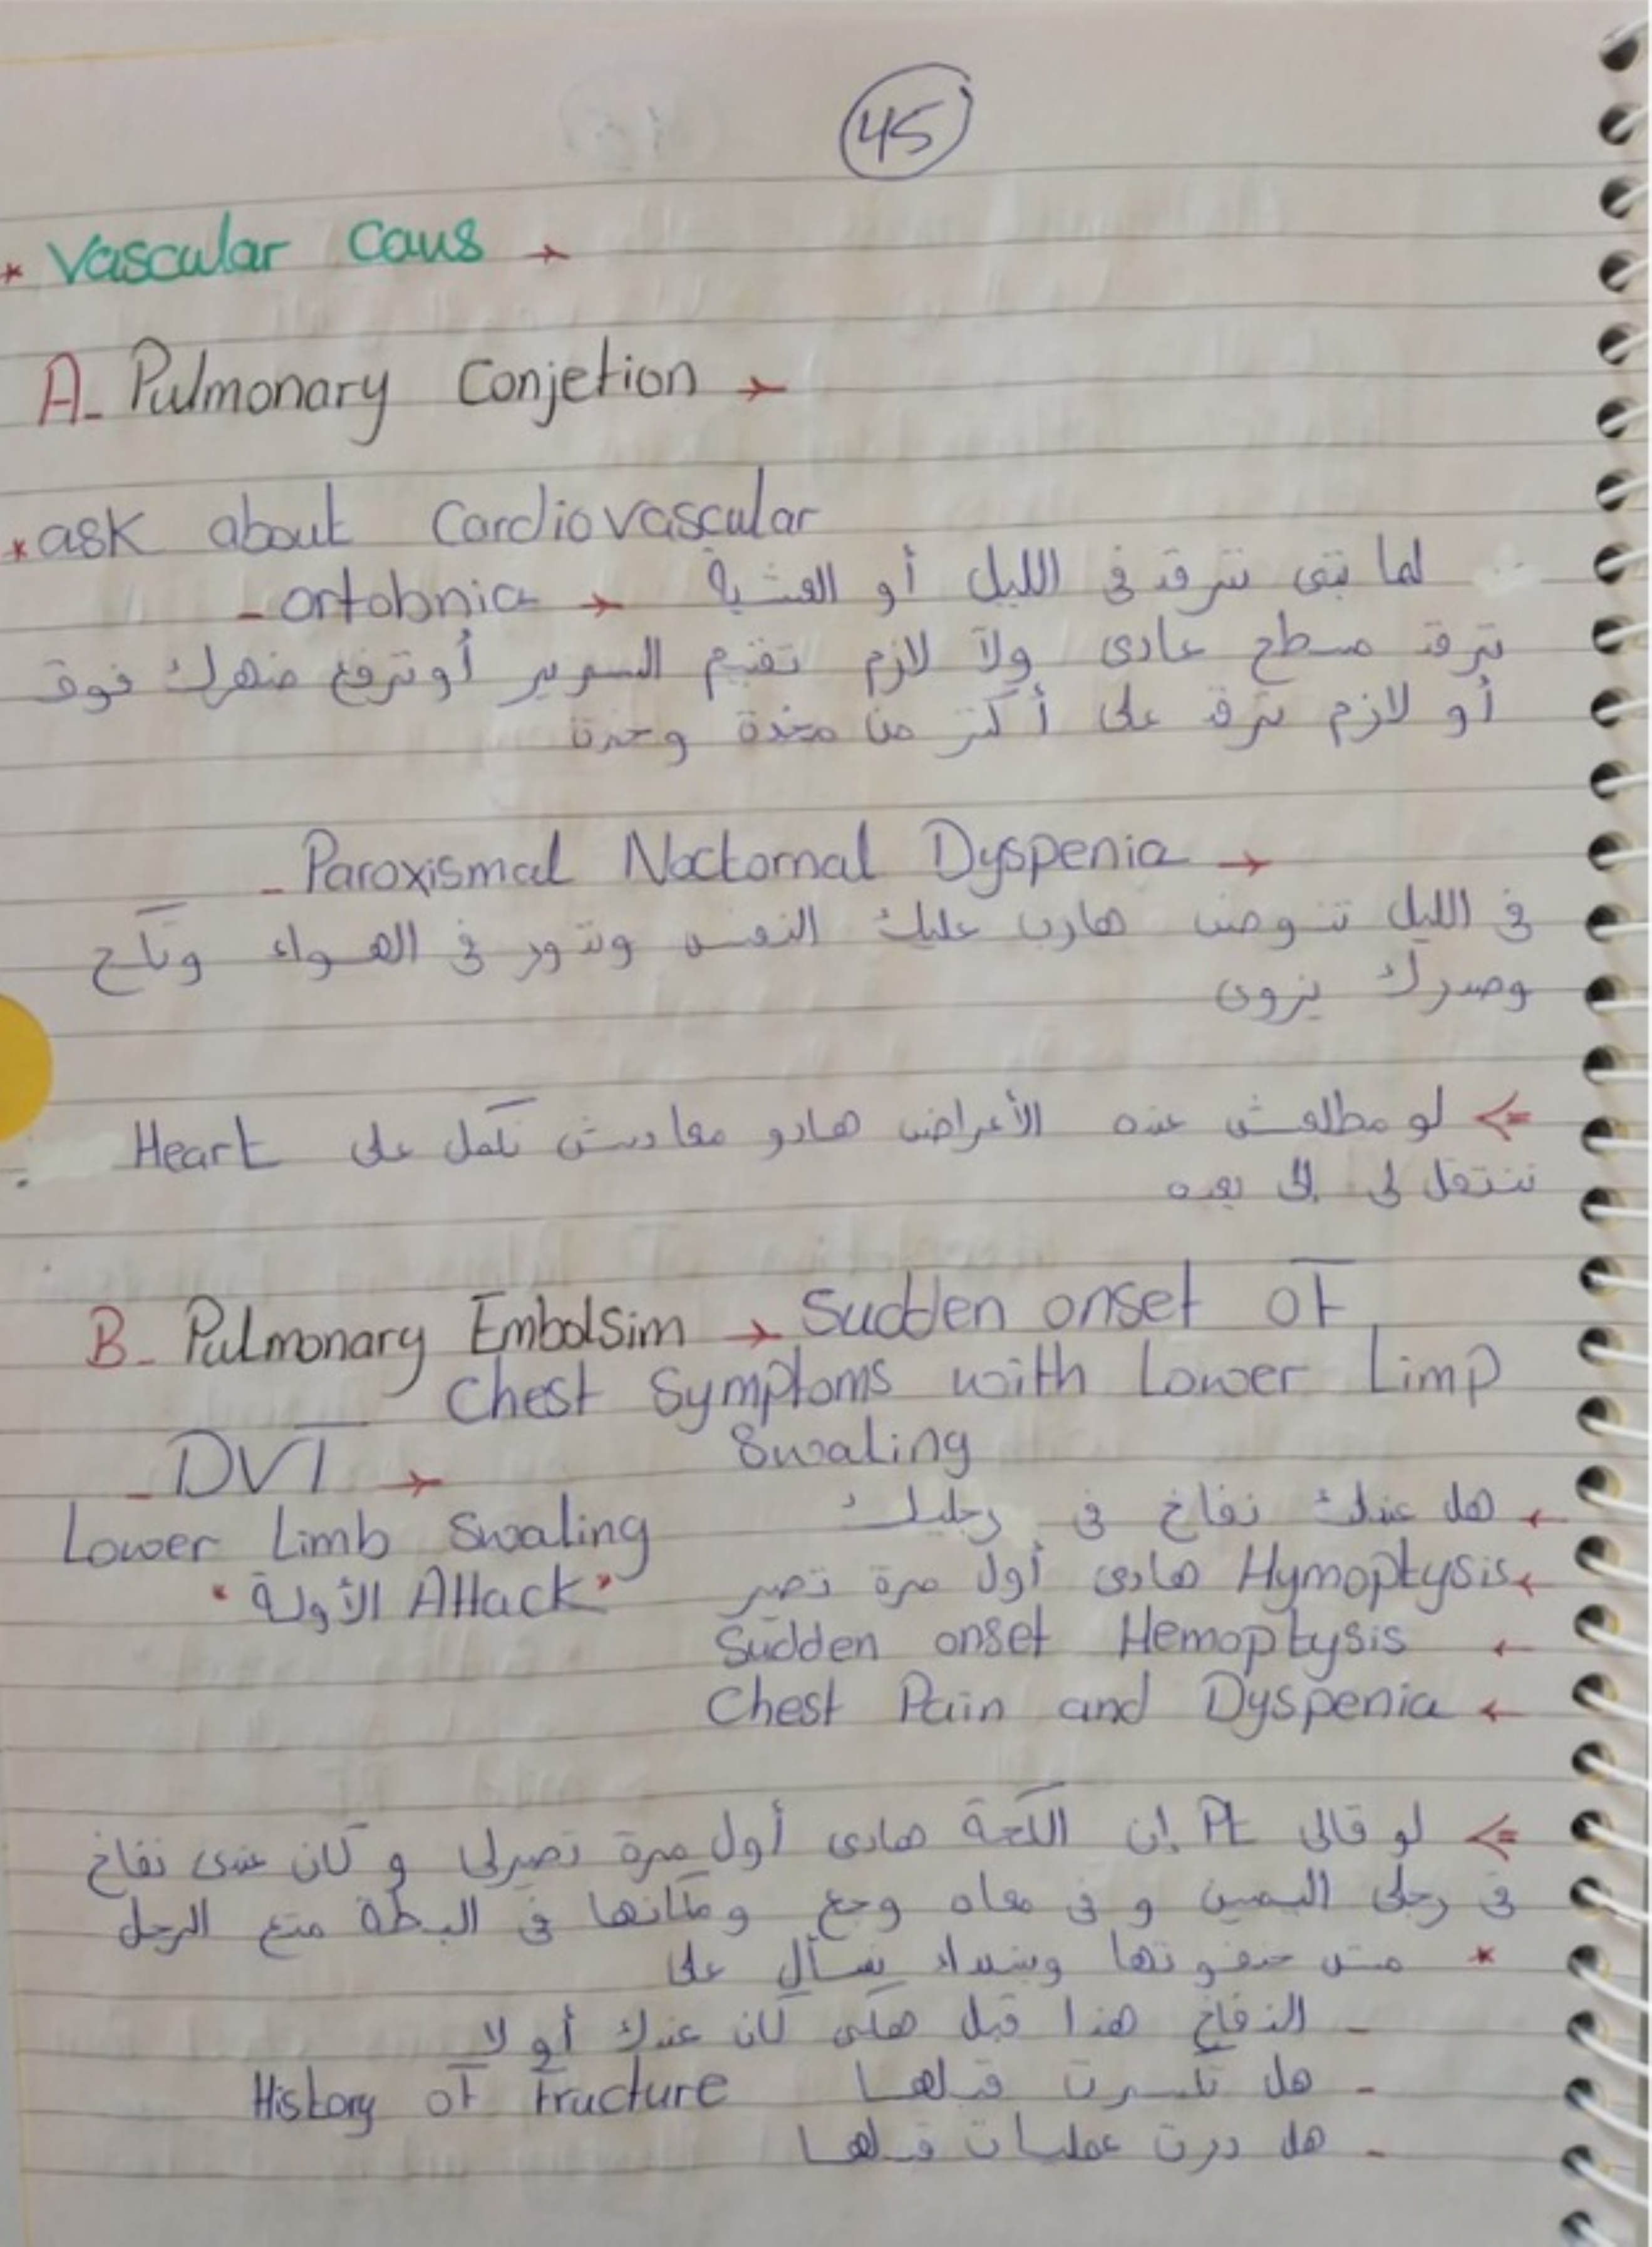 45
* Vascular Caus →
A- Pulmonary Conjetion →
* ask about Cardiovascular
- ortobnia → لما تبى ترقد فى الليل أو العشية
ترقد مسطح عادى ولا لازم تقيم السرير أو ترفع ضهرك فوق
أو لازم ترقد على أكتر من مخدة وحدة
- Paroxismal Noctornal Dyspenia →
فى الليل تنوض هارب عليك النفس وتدور فى الهواء وتكح
وصدرك يزوى
⇐ لو مطلعش عنده الأعراض هادو معادش نكمل على Heart
ننتقل لى إلى بعده
B- Pulmonary Embolsim → Sudden onset of
Chest Symptoms with Lower Limp
Swaling
- DVT →
Lower Limb Swaling
" الأولة Attack "
← هل عندك نفاخ فى رجليك
← Hymoptysis هادى أول مرة تصير
← Sudden onset Hemoptysis
← Chest Pain and Dyspenia
⇐ لو قالى Pt إن الكحة هادى أول مرة تصيرلى و كان عندى نفاخ
فى رجلى اليمين و فى معاه وجع ومكانها فى البطة متع الرجل
* مش حنفوتها ونبداء نسأل على
- النفاخ هذا قبل هكى كان عندك أو لا
- هل تكسرت قبلها History of Fructure
- هل درت عمليات قبلها